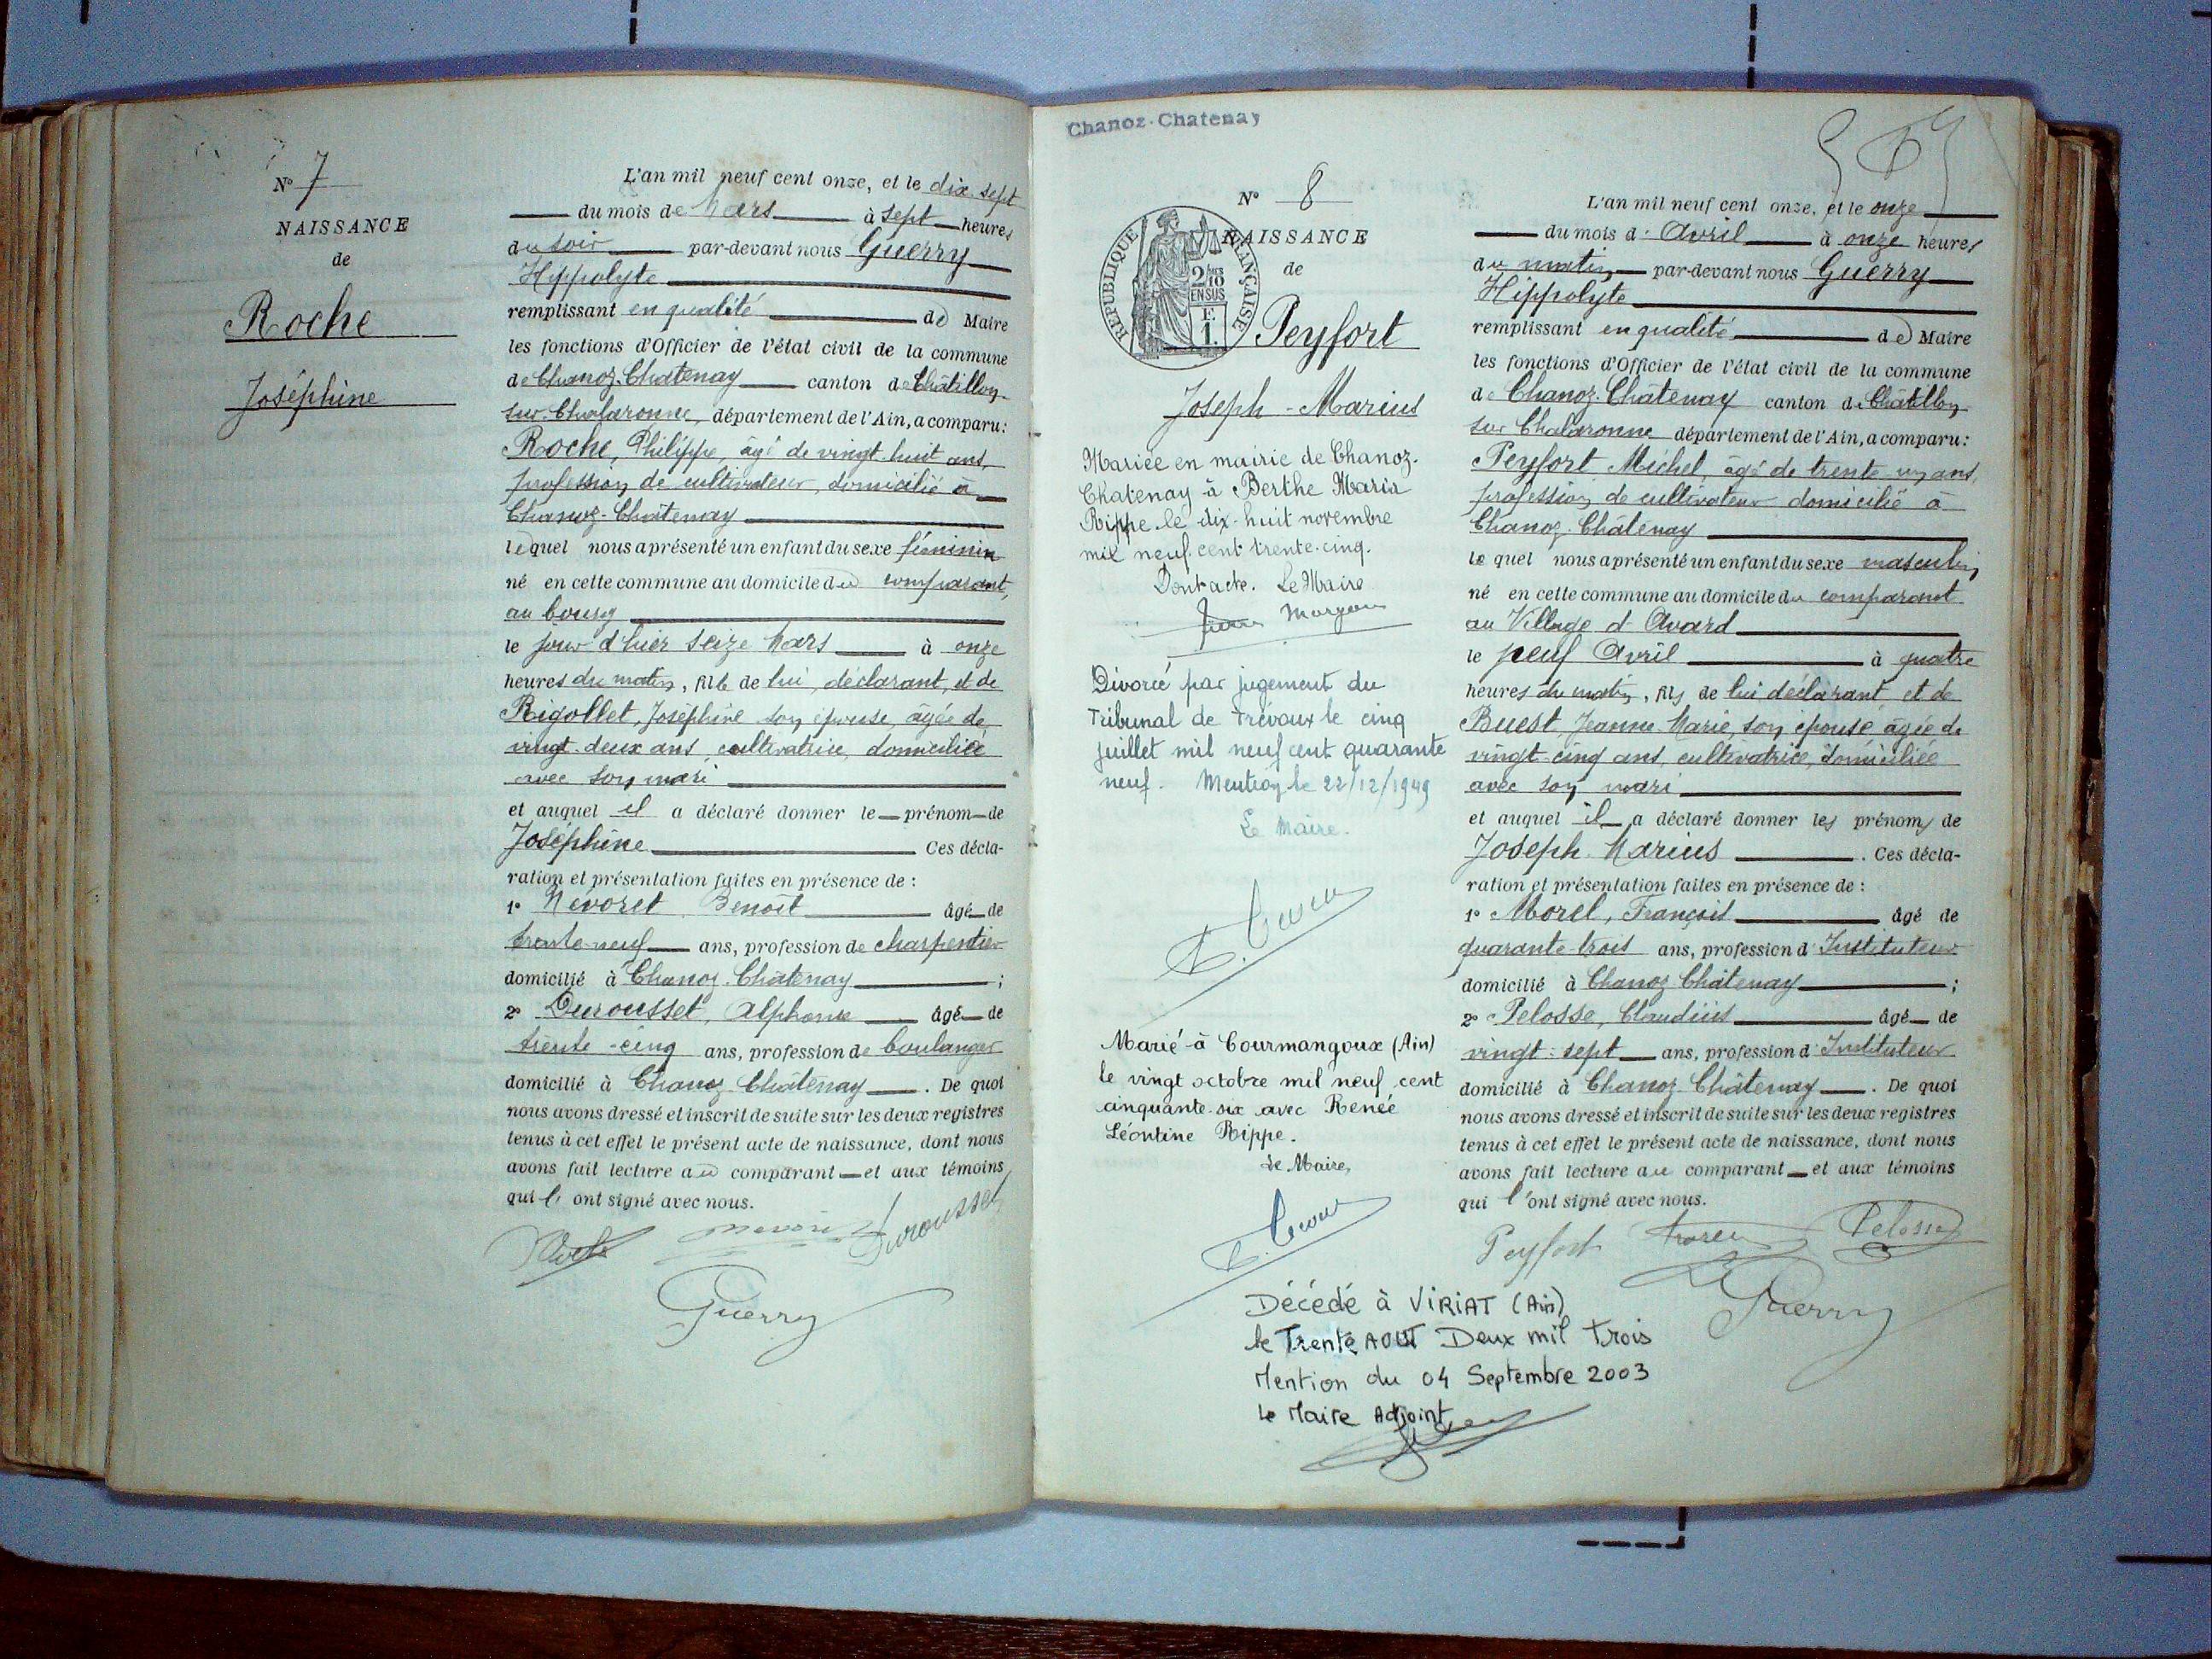 N° 7
NAISSANCE
de
Roche
Joséphine
L'an mil neuf cent onze, et le dix-sept
du mois de Mars à sept heures
du soir par-devant nous Guerry
Hippolyte
remplissant en qualité de Maire
les fonctions d'Officier de l'état civil de la commune
de Chanoz-Chatenay canton de Châtillon-
sur-Chalaronne, département de l'Ain, a comparu:
Roche, Philippe, âgé de vingt-huit ans,
profession de cultivateur, domicilié à
Chanoz-Châtenay
lequel nous a présenté un enfant du sexe féminin
né en cette commune au domicile du comparant,
au bourg
le jour d'hier seize Mars à onze
heures du matin, fille de lui, déclarant, et de
Rigollet, Joséphine son épouse, âgée de
vingt-deux ans, cultivatrice, domiciliée
avec son mari
et auquel il a déclaré donner le prénom de
Joséphine Ces décla-
ration et présentation faites en présence de :
1° Nevoret Benoît âgé de
trente-neuf ans, profession de charpentier
domicilié à Chanoz-Châtenay ;
2° Durousset, Alphonse âgé de
trente-cinq ans, profession de boulanger
domicilié à Chanoz-Châtenay . De quoi
nous avons dressé et inscrit de suite sur les deux registres
tenus à cet effet le présent acte de naissance, dont nous
avons fait lecture au comparant et aux témoins
qui l'ont signé avec nous.
Durousset
Guerry
Chanoz-Chatenay
N° 8
REPUBLIQUE FRANÇAISE
2/10
EN SUS
F.
1.
NAISSANCE
de
Peyfort
Joseph-Marius
Mariée en mairie de Chanoz-
Chatenay à Berthe Maria
Rippe le dix-huit novembre
mil neuf cent trente-cinq.
Dont acte. Le Maire
Divorcé par jugement du
Tribunal de Trévoux le cinq
juillet mil neuf cent quarante
neuf. Mention le 22/12/1949
Le Maire.
Marié à Courmangoux (Ain)
le vingt octobre mil neuf cent
cinquante-six avec Renée
Léontine Rippe.
Le Maire,
Décédé à VIRIAT (Ain)
le Trente AOUT Deux mil trois
Mention du 04 Septembre 2003
Le Maire Adjoint
L'an mil neuf cent onze, et le onze
du mois d'Avril à onze heures
du matin par-devant nous Guerry
Hippolyte
remplissant en qualité de Maire
les fonctions d'Officier de l'état civil de la commune
de Chanoz-Châtenay canton de Châtillon
sur Chalaronne département de l'Ain, a comparu:
Peyfort Michel, âgé de trente-un ans,
profession de cultivateur domicilié à
Chanoz-Châtenay
lequel nous a présenté un enfant du sexe masculin
né en cette commune au domicile du comparant
au Village d'Avard
le neuf Avril à quatre
heures du matin, fils de lui déclarant, et de
Buest, Jeanne-Marie, son épouse âgée de
vingt-cinq ans, cultivatrice, domiciliée
avec son mari
et auquel il a déclaré donner les prénoms de
Joseph-Marius . Ces décla-
ration et présentation faites en présence de :
1° Morel, François âgé de
quarante-trois ans, profession d'Instituteur
domicilié à Chanoz-Châtenay ;
2° Pelosse, Claudius âgé de
vingt-sept ans, profession d'Instituteur
domicilié à Chanoz-Châtenay . De quoi
nous avons dressé et inscrit de suite sur les deux registres
tenus à cet effet le présent acte de naissance, dont nous
avons fait lecture au comparant et aux témoins
qui l'ont signé avec nous.
Peyfort Morel Pelosse
Guerry